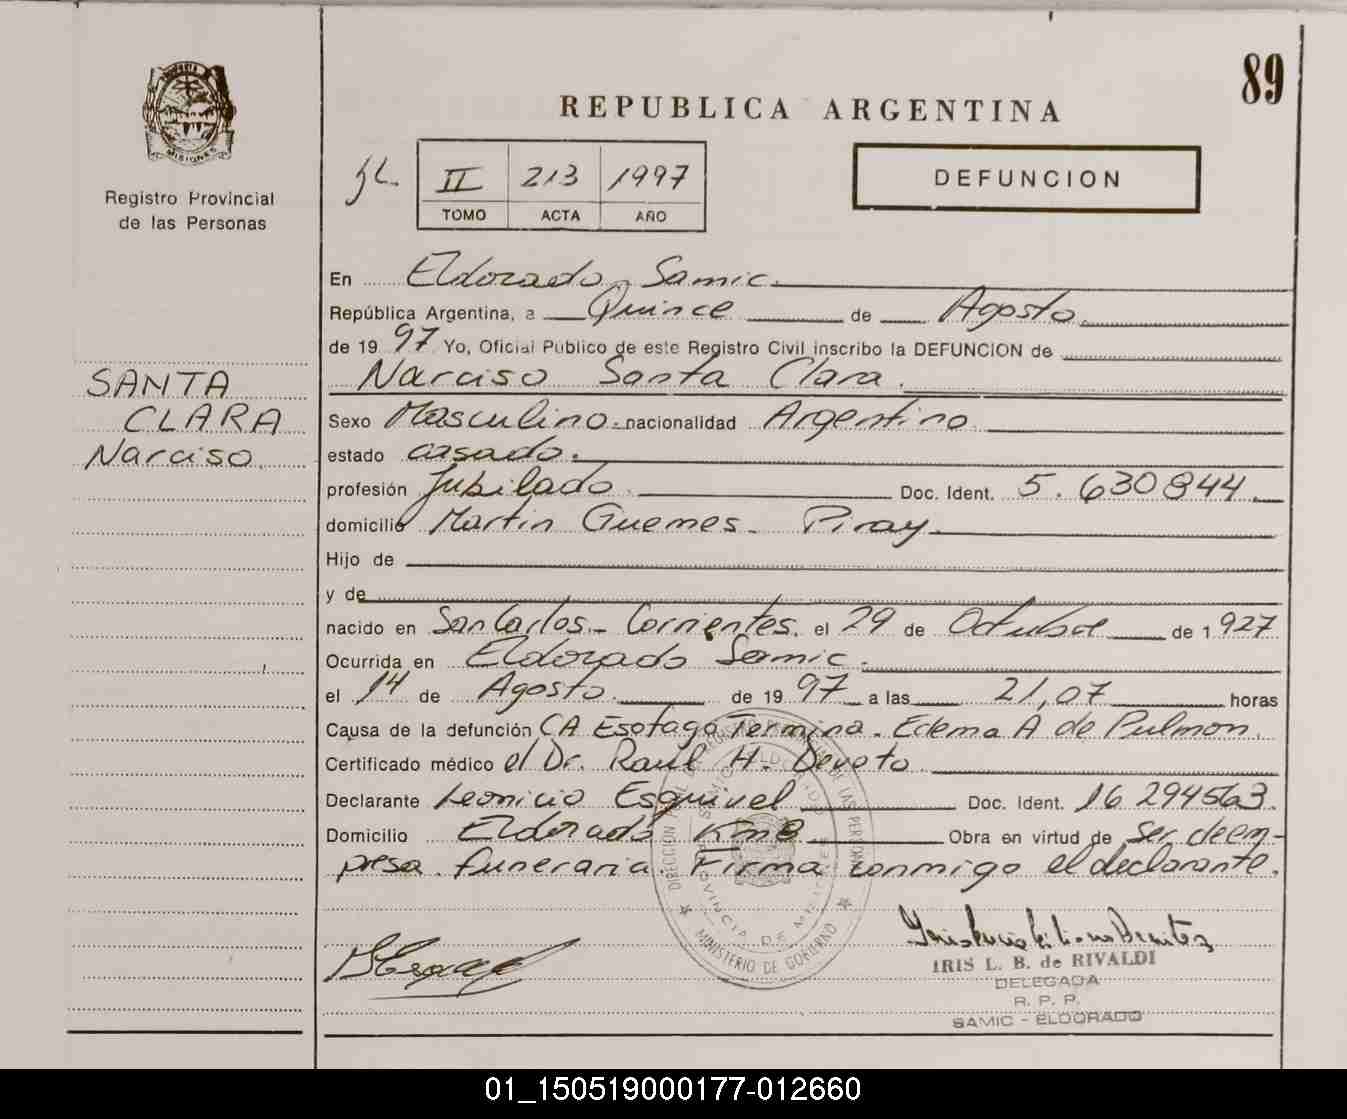 89
REPUBLICA ARGENTINA
MISIONES
Registro Provincial
de las Personas
II 213 1997
TOMO ACTA AÑO
DEFUNCION
SANTA
CLARA
Narciso
En Eldorado Samic.
República Argentina, a Quince de Agosto
de 19 97 Yo, Oficial Público de este Registro Civil inscribo la DEFUNCION de
Narciso Santa Clara.
Sexo Masculino. nacionalidad Argentino
estado casado.
profesión Jubilado Doc. Ident. 5.630844
domicilio Martin Guemes. Piray.
Hijo de
y de
nacido en San Carlos - Corrientes. el 29 de Octubre de 1927
Ocurrida en Eldorado Samic.
el 14 de Agosto de 19 97 a las 21,07 horas
Causa de la defunción CA Esofago Termina. Edema A de Pulmon.
Certificado médico el Dr. Raul H. Devoto
Declarante Leonicio Esquivel Doc. Ident. 16 294563.
Domicilio Eldorado Km 8 Obra en virtud de Ser de em-
presa funeraria. Firma conmigo el declarante.
PROVINCIA DE MISIONES
MINISTERIO DE GOBIERNO
IRIS L. B. de RIVALDI
DELEGADA
R. P. P.
SAMIC - ELDORADO
01_150519000177-012660